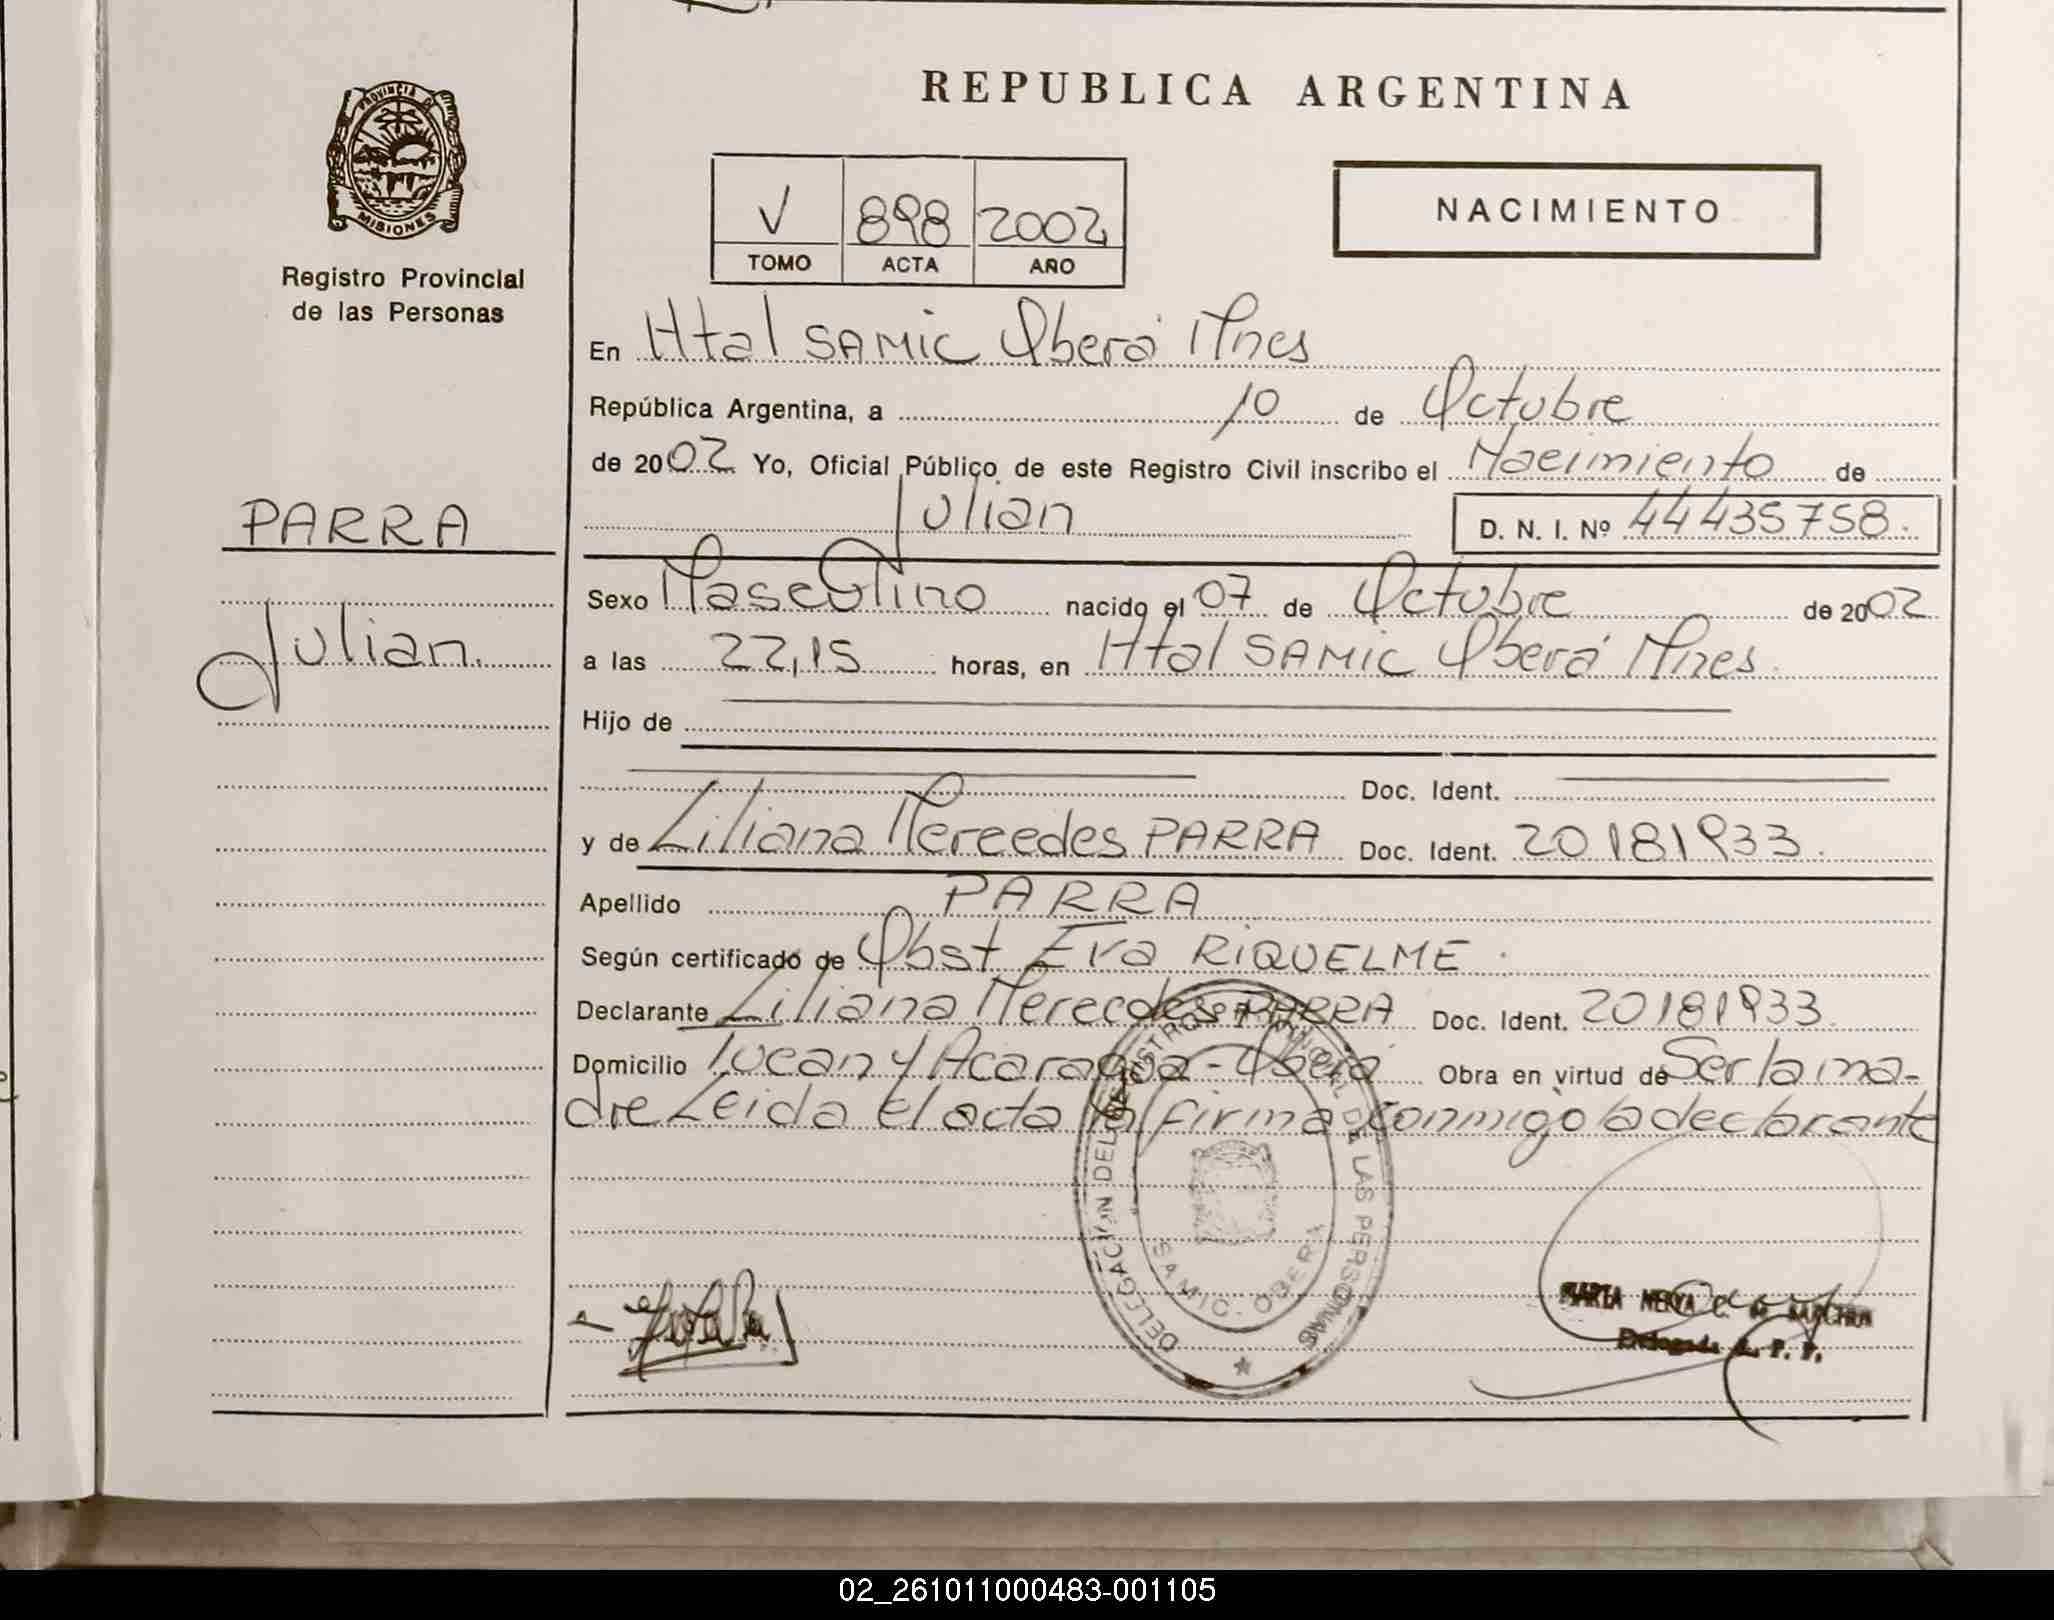 PROVINCIA DE
MISIONES
Registro Provincial
de las Personas
PARRA
Julian.
REPUBLICA ARGENTINA
V 898 2002
TOMO ACTA AÑO
NACIMIENTO
En Htal SAMIC Oberá Mnes
República Argentina, a 10 de Octubre
de 2002 Yo, Oficial Público de este Registro Civil inscribo el Nacimiento de
Julian D. N. I. Nº 44435758.
Sexo Masculino nacido el 07 de Octubre de 2002
a las 22,15 horas, en Htal SAMIC Oberá Mnes.
Hijo de
Doc. Ident.
y de Liliana Mercedes PARRA Doc. Ident. 20181933.
Apellido PARRA
Según certificado de Obst Eva RIQUELME.
Declarante Liliana Mercedes PARRA Doc. Ident. 20181933.
Domicilio y Acaragua - Oberá Obra en virtud de Ser la ma-
dre Leida el acta la firma conmigo la declarante
DELEGACIÓN DEL REGISTRO PROVINCIAL DE LAS PERSONAS
SAMIC - OBERA
MARIA C. de
Delegada R. P. P.
02_261011000483-001105